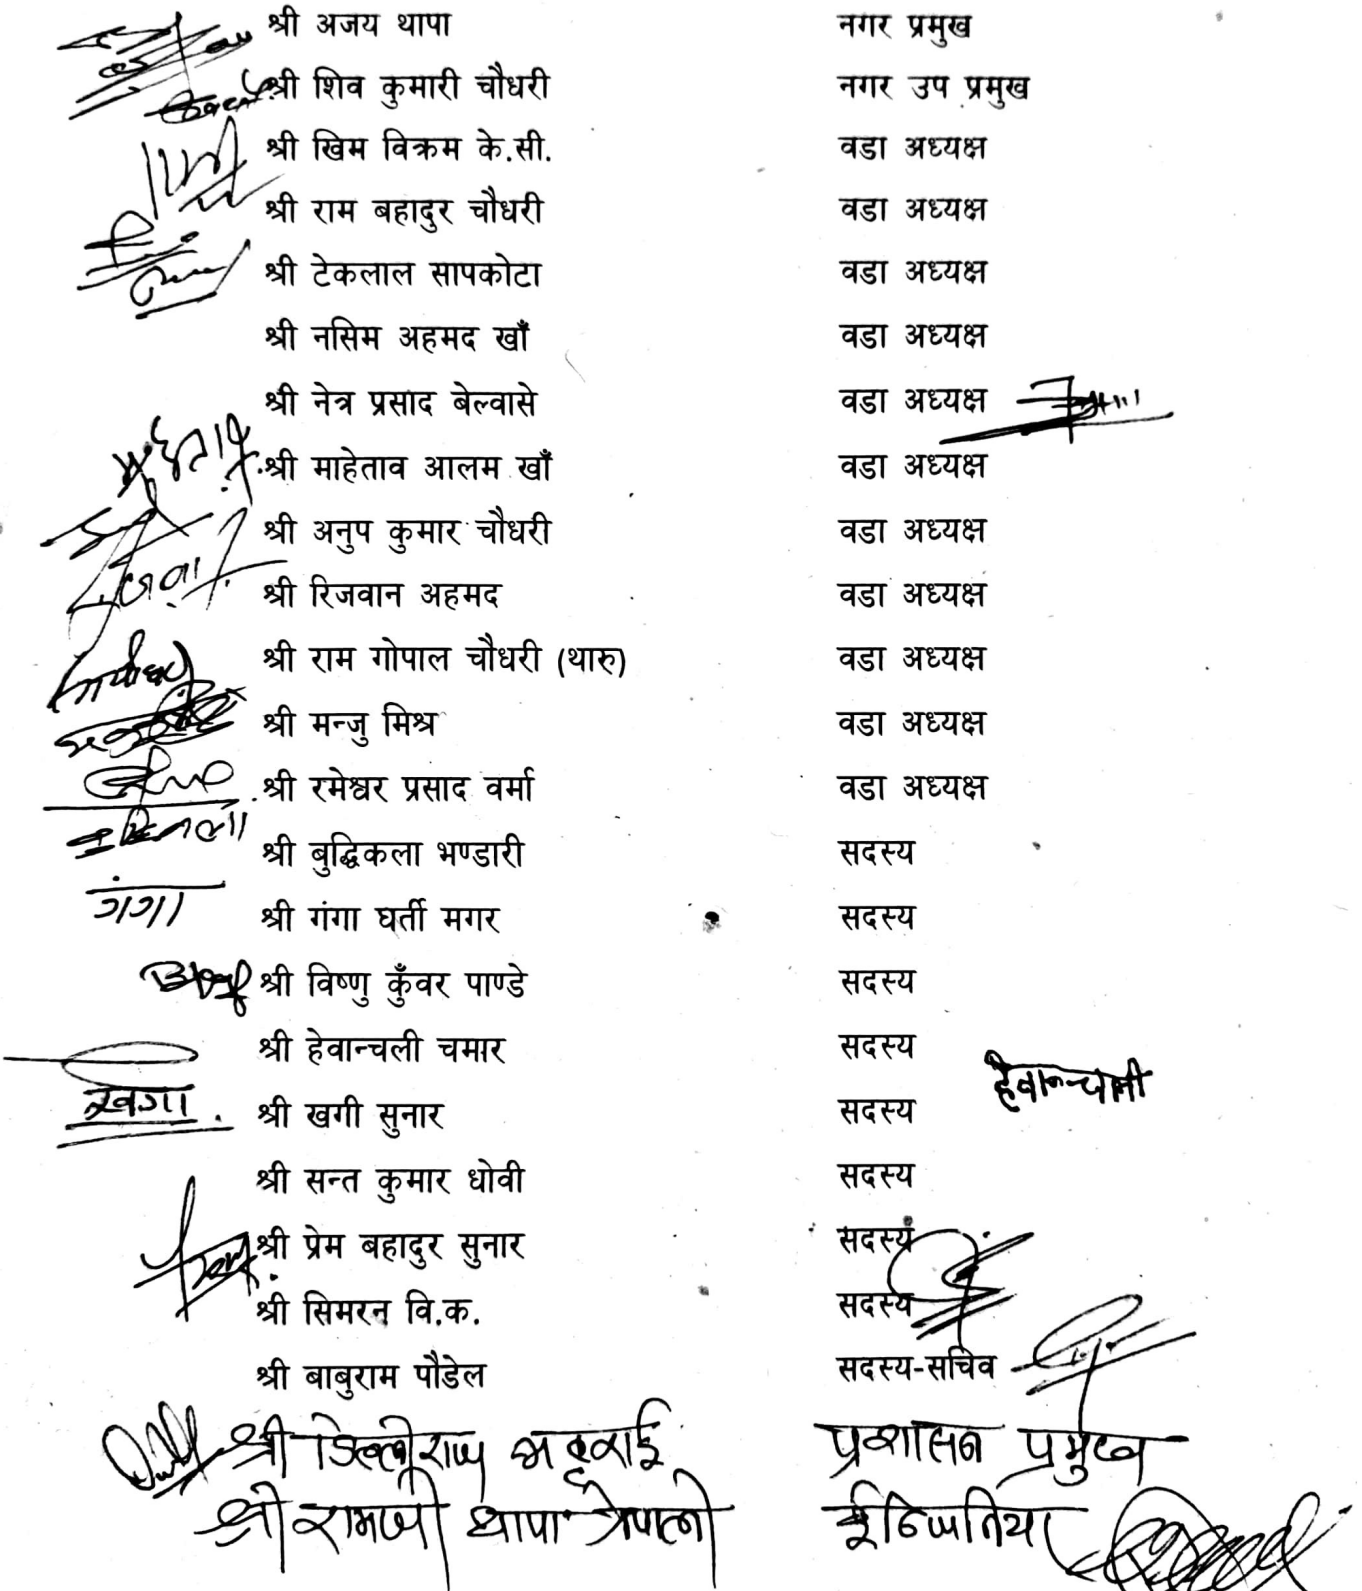 श्री अजय थापा नगर प्रमुख
श्री शिव कुमारी चौधरी नगर उप प्रमुख
श्री खिम विक्रम के.सी. वडा अध्यक्ष
श्री राम बहादुर चौधरी वडा अध्यक्ष
श्री टेकलाल सापकोटा वडा अध्यक्ष
श्री नसिम अहमद खाँ वडा अध्यक्ष
श्री नेत्र प्रसाद बेल्वासे वडा अध्यक्ष
श्री माहेताव आलम खाँ वडा अध्यक्ष
श्री अनुप कुमार चौधरी वडा अध्यक्ष
श्री रिजवान अहमद वडा अध्यक्ष
श्री राम गोपाल चौधरी (थारु) वडा अध्यक्ष
श्री मन्जु मिश्र वडा अध्यक्ष
श्री रमेश्वर प्रसाद वर्मा वडा अध्यक्ष
श्री बुद्धिकला भण्डारी सदस्य
गंगा श्री गंगा घर्ती मगर सदस्य
श्री विष्णु कुँवर पाण्डे सदस्य
श्री हेवान्चली चमार सदस्य
हेवान्चली
श्री खगी सुनार सदस्य
श्री सन्त कुमार धोवी सदस्य
श्री प्रेम बहादुर सुनार सदस्य
श्री सिमरन वि.क. सदस्य
श्री बाबुराम पौडेल सदस्य-सचिव
श्री डिल्लीराज भट्टराई प्रशासन प्रमुख
श्री रामजी थापा नेपाली